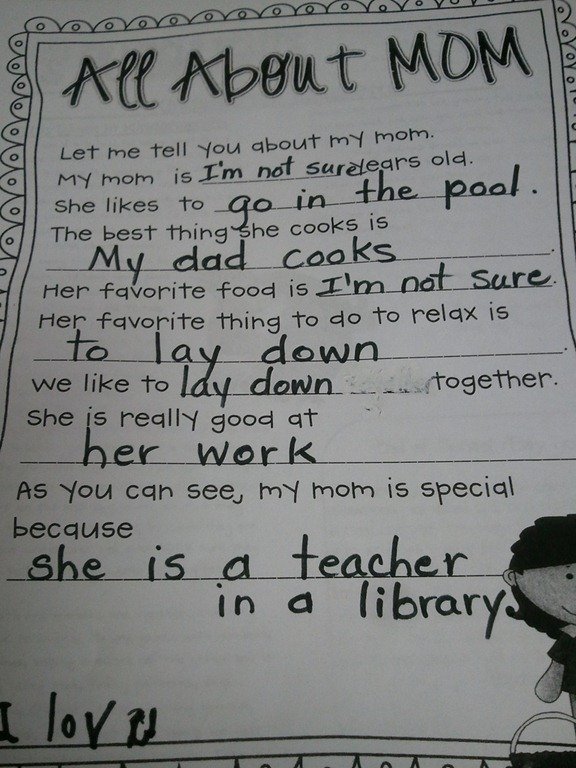 All About MOM
Let me tell you about my mom.
My mom is I'm not sure years old.
She likes to go in the pool.
The best thing she cooks is
My dad cooks.
Her favorite food is I'm not sure.
Her favorite thing to do to relax is
to lay down.
We like to lay down together.
She is really good at
her work
As you can see, my mom is special
because
she is a teacher
in a library.
I lov u